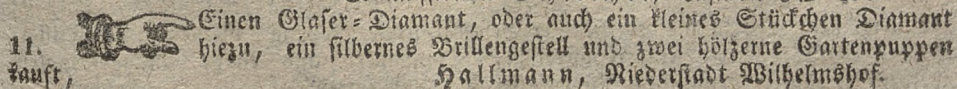 Einen Glaser-Diamant, oder auch ein kleines Stückchen Diamant
11. hiezu, ein silbernes Brillengestell und zwei hölzerne Gartenpuppen
kauft, Hallmann, Niederstadt Wilhelmshof.